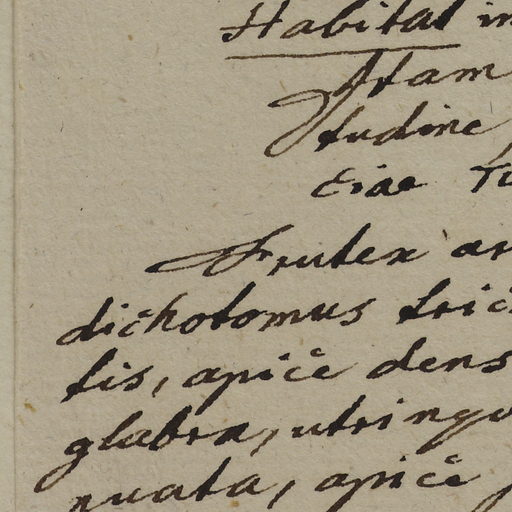 Habitat in
Stam
tudine,
ciae
Frutex
dichotomus tric
tis, apice dens
glabra, utrinqu
nuata, apice